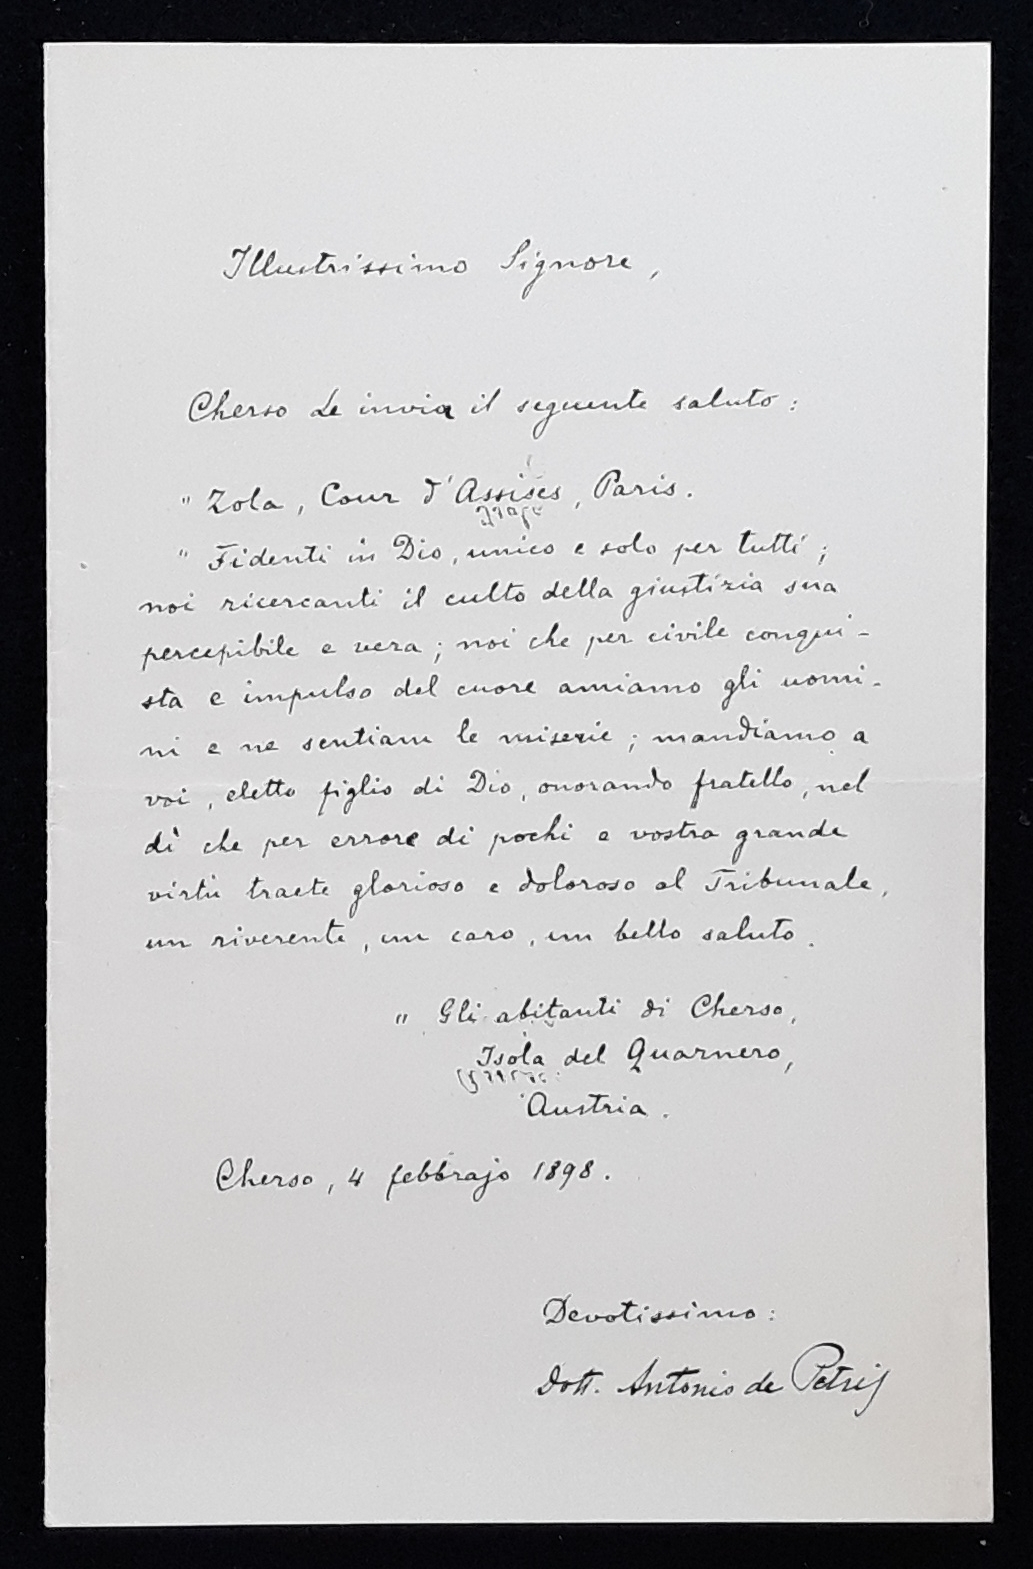 Illustrissimo Signore,
Cherso Le invia il seguente saluto:
" Zola, Cour d'Assises, Paris.
" Fidenti in Dio, unico e solo per tutti;
noi ricercanti il culto della giustizia sua
percepibile e vera; noi che per civile conqui-
sta e impulso del cuore amiamo gli uomi-
ni e ne sentiam le miserie; mandiamo a
voi, eletto figlio di Dio, onorando fratello, nel
dì che per errore di pochi e vostra grande
virtù traete glorioso e doloroso al Tribunale,
un riverente, un caro, un bello saluto.
" Gli abitanti di Cherso,
Isola del Quarnero,
Austria.
Cherso, 4 febbrajo 1898.
Devotissimo:
Dott. Antonio de Petris